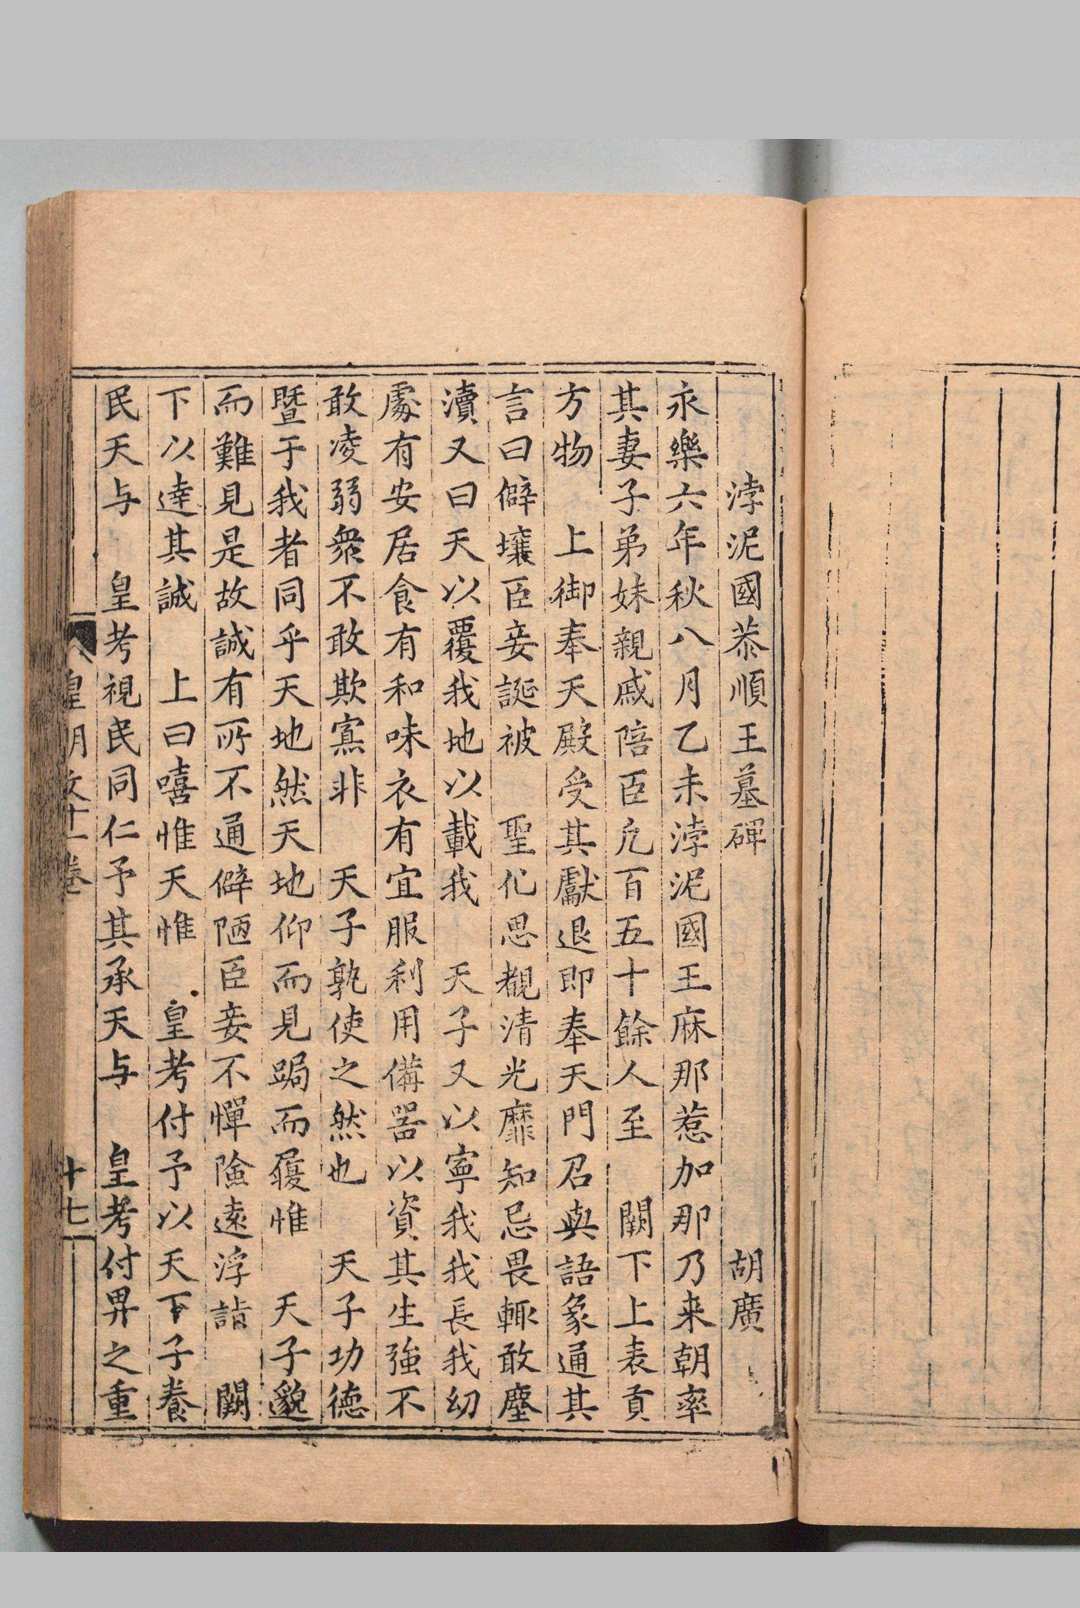 浡泥國恭順王墓碑　胡廣
永樂六年秋八月乙未浡泥國王麻那惹加那乃来朝率
其妻子弟妹親戚陪臣凢百五十餘人至　闕下上表貢
方物　上御奉天殿受其獻退即奉天門召與語象通其
言曰僻壤臣妾誕被　聖化思覩清光靡知忌畏輒敢塵
瀆又曰天以覆我地以載我　天子又以寧我我長我幼
處有安居食有和味衣有宜服利用備噐以資其生強不
敢凌弱衆不敢欺寡非　天子孰使之然也　天子功德
暨于我者同乎天地然天地仰而見跼而履惟　天子邈
而難見是故誠有所不通僻陋臣妾不憚險遠浮詣　闕
下以逹其誠　上曰嘻惟天惟　皇考付予以天下子養
民天与　皇考視民同仁予其承天与　皇考付畀之重
皇明文十一卷　十七